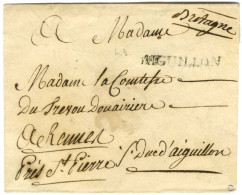 A Madame
Bretagne
AIGUILLON
Madame la Comtesse
Du Tresou Douairiere
A Rennes
Près St Pierre / Duc d'aiguillon